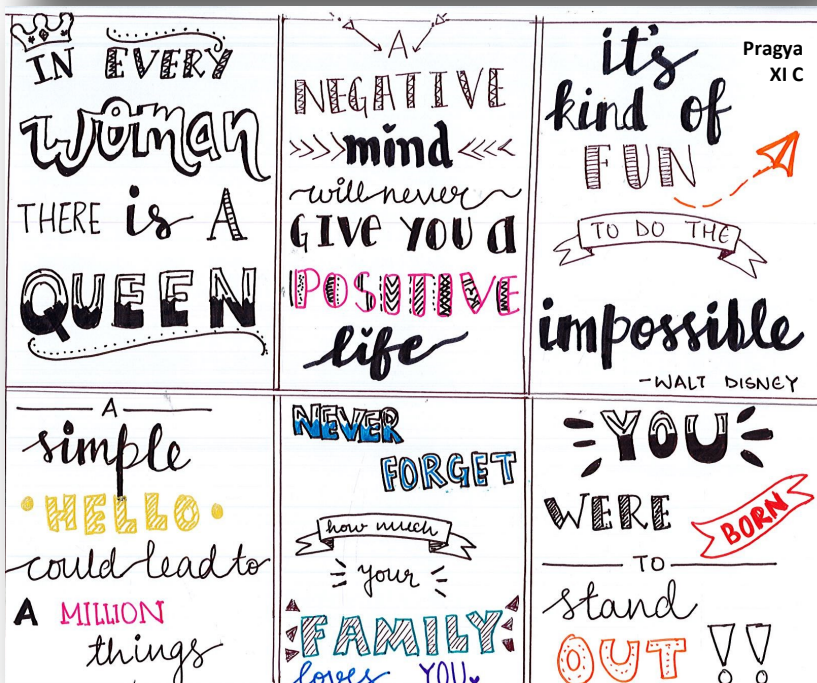 IN EVERY
woman
THERE is A
QUEEN
A
NEGATIVE
mind
will never
GIVE YOU a
POSITIVE
life
it's
kind of
FUN
TO DO THE
impossible
-WALT DISNEY
Pragya
XI C
A
simple
HELLO
could lead to
A MILLION
things
NEVER
FORGET
how much
your
FAMILY
loves YOU
YOU
WERE BORN
TO
stand
OUT !!